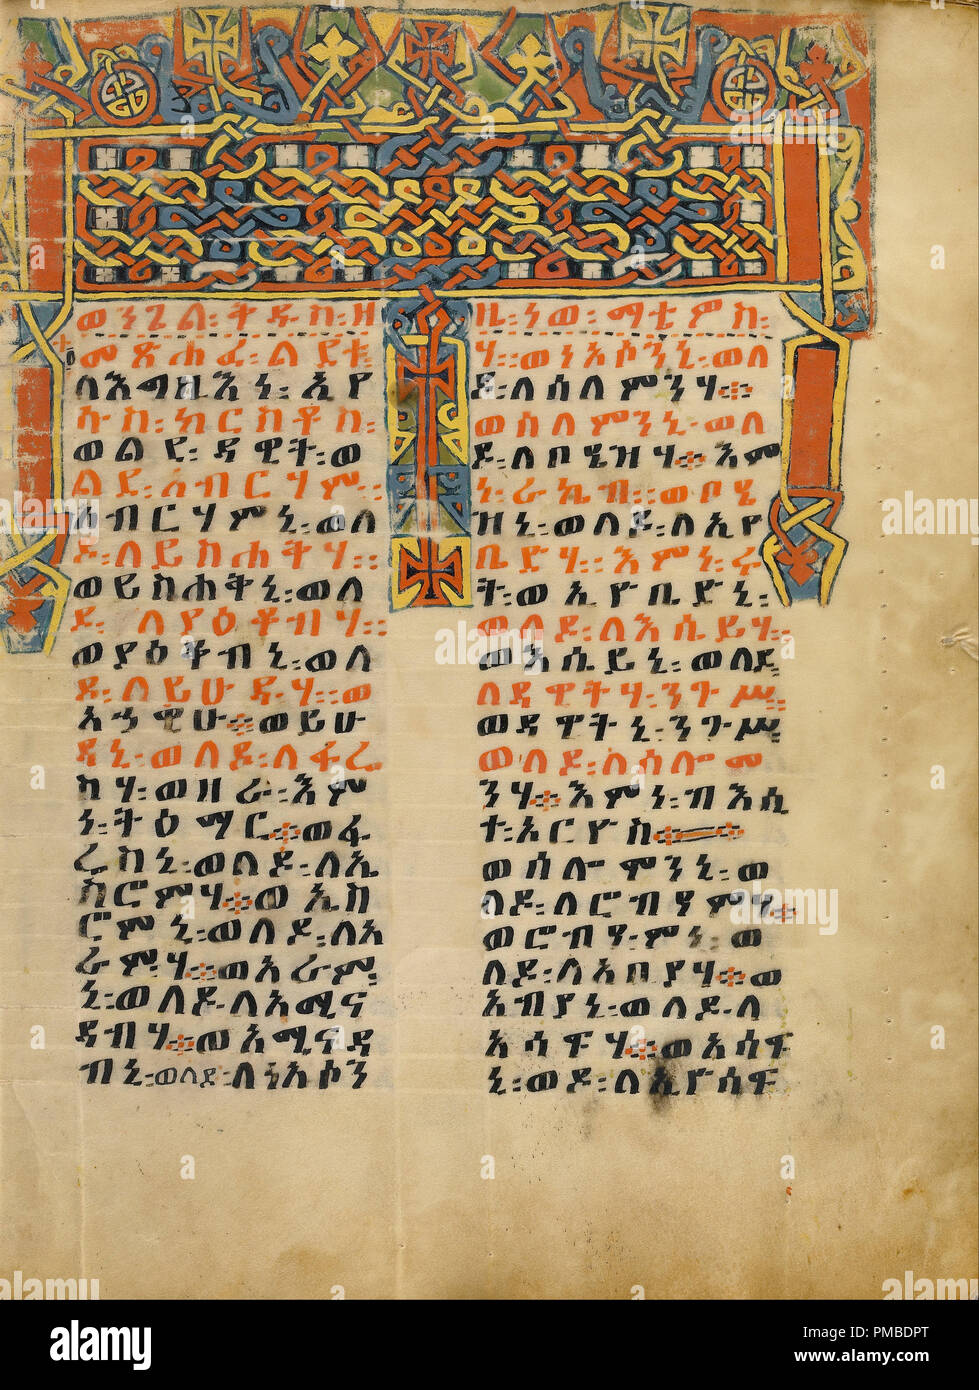 ወንጌል፡ቅዱስ፡ዘ
መጽሐፈ፡ልደቱ
ለእግዚእነ፡ኢየ
ሱስ፡ክርስቶስ፡
ወልደ፡ዳዊት፡ወ
ልደ፡አብርሃም።
አብርሃምኒ፡ወለ
ዶ፡ለይስሐቅሃ።
ወይስሐቅኒ፡ወለ
ዶ፡ለያዕቆብሃ።
ወያዕቆብኒ፡ወለ
ዶ፡ለይሁዳሃ።ወ
አኃዊሁ፨ወይሁ
ዳኒ፡ወለዶ፡ለፋሬ
ስሃ፡ወዘራ፡እም
ነ፡ትዕማር፨ወፋ
ሬስኒ፡ወለዶ፡ለኤ
ስሮምሃ፨ወኤስ
ሮምኒ፡ወለዶ፡ለአ
ራምሃ፨ወአራም
ኒ፡ወለዶ፡ለአሚና
ዳብሃ፨ወአሚናዳ
ብኒ፡ወለደ፡ለነአሶን
ዜ፡ነወ፡ማቴዎስ፡
ሃ።ወነአሶንኒ፡ወለ
ዶ፡ለሰለምንሃ፨
ወሰለምንኒ፡ወለ
ዶ፡ለቦዔዝሃ፨እም
ነ፡ራኬብ።ወቦዔ
ዝኒ፡ወለዶ፡ለኢዮ
ቤድሃ፡እምነ፡ሩ
ት፡ወኢዮቤድኒ፡
ወለዶ፡ለእሴይሃ።
ወእሴይኒ፡ወለዶ
ለዳዊትሃ፡ንጉሥ።
ወዳዊትኒ፡ንጉሥ።
ወለዶ፡ለሰሎሞ
ንሃ፨እምነ፡ብእሲ
ተ፡ኦርዮስ፨
ወሰሎሞንኒ፡ወ
ለዶ፡ለሮብዓምሃ፨
ወሮብዓምኒ፡ወ
ለዶ፡ለአብያሃ፨ወ
አብያኒ፡ወለዶ፡ለ
አሳፍሃ፨ወአሳፍ
ኒ፡ወዶ፡ለኢዮሳፍ
alamy
Image ID: PMBDPT
www.alamy.com